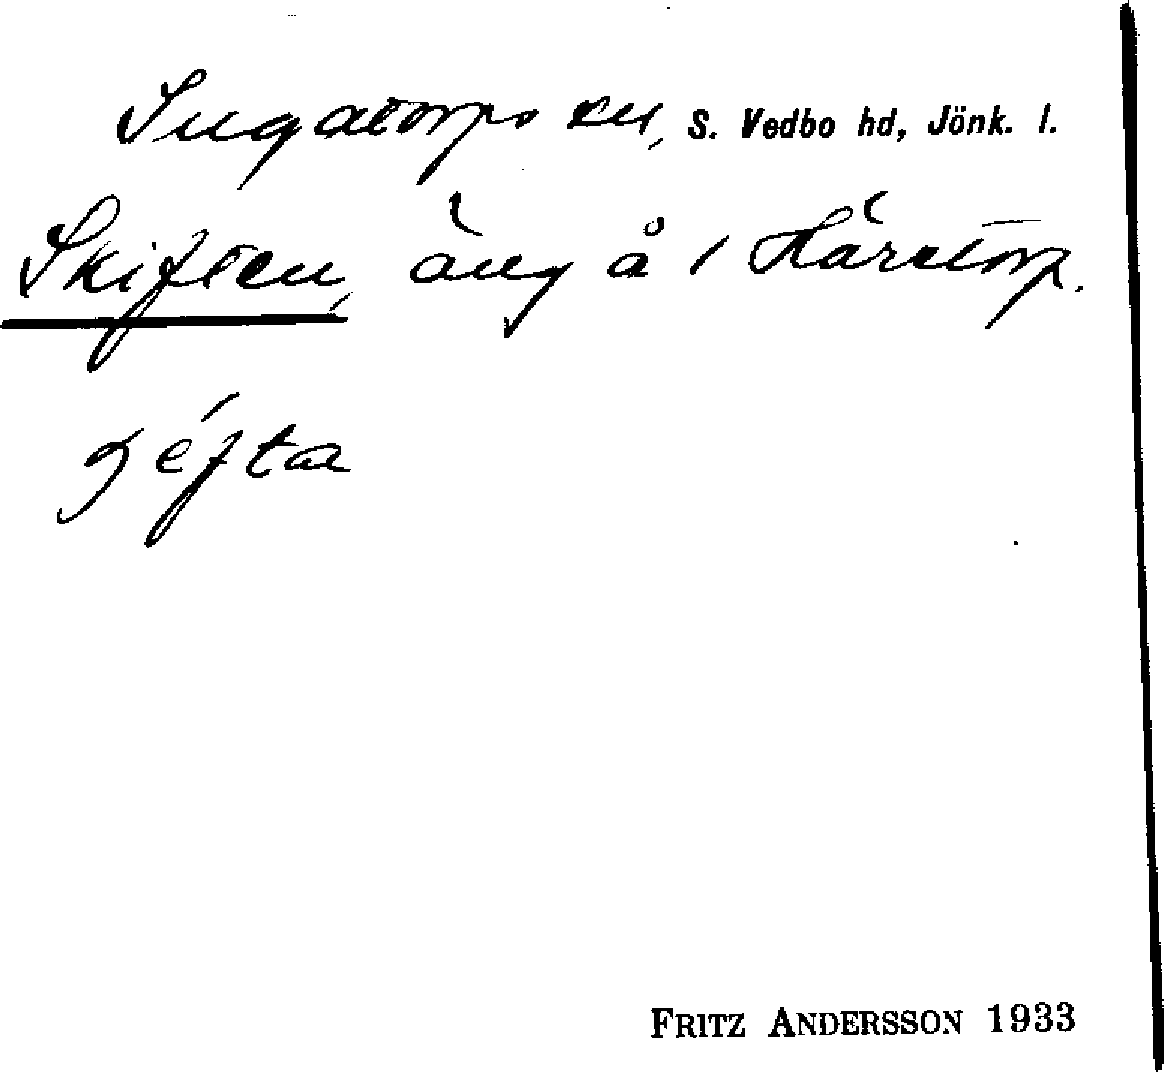 Ingatorps sn, S. Vedbo hd, Jönk. l.
Skiften, äng å 1 Härstorp.
ʃéfta
FRITZ ANDERSSON 1933